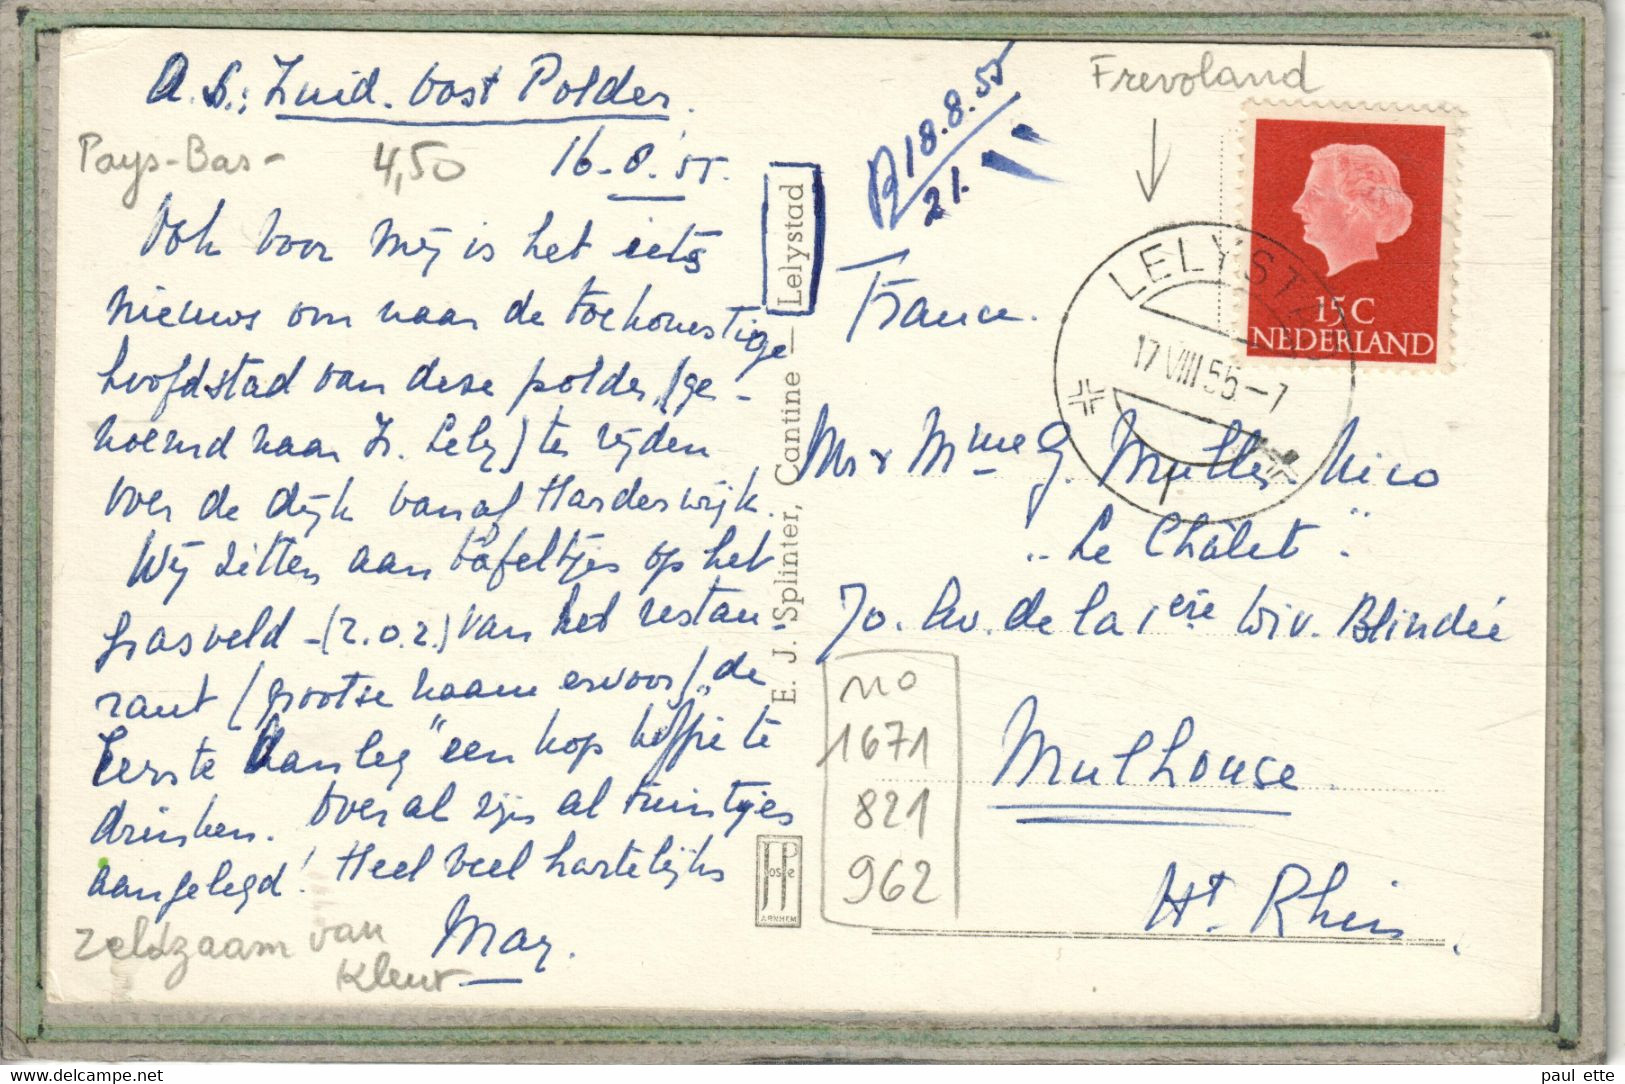 Zuid. Oost Polder.
Pays-Bas - 4,50 16-8.'55.
Ook voor mij is het iets
nieuws om naar de toekomstige
hoofdstad van deze polder, (ge-
noemd naar Ir. Lely) te rijden
over de dijk vanaf Harderwijk.
Wij zitten aan tafeltjes op het
grasveld -(z.o.z.) van het restau-
rant (grootse naam ervoor) "de
Eerste Aanleg" een kop koffie te
drinken. Overal zijn al tuintjes
aangelegd! Heel veel hartelijks
May.
zeldzaam van
kleur
E. J. Splinter, Cantine — Lelystad
JosPe
ARNHEM
18.8.55
21.
Frevoland
15 C
NEDERLAND
LELYSTAD
17 VIII 55-7
France.
Mr & Mme G. Muller-Nico
"Le Châlet".
70. Av. de la 1ère Div. Blindée
Mulhouse.
Ht. Rhin.
no
1671
821
962
delcampe.net
paul ette